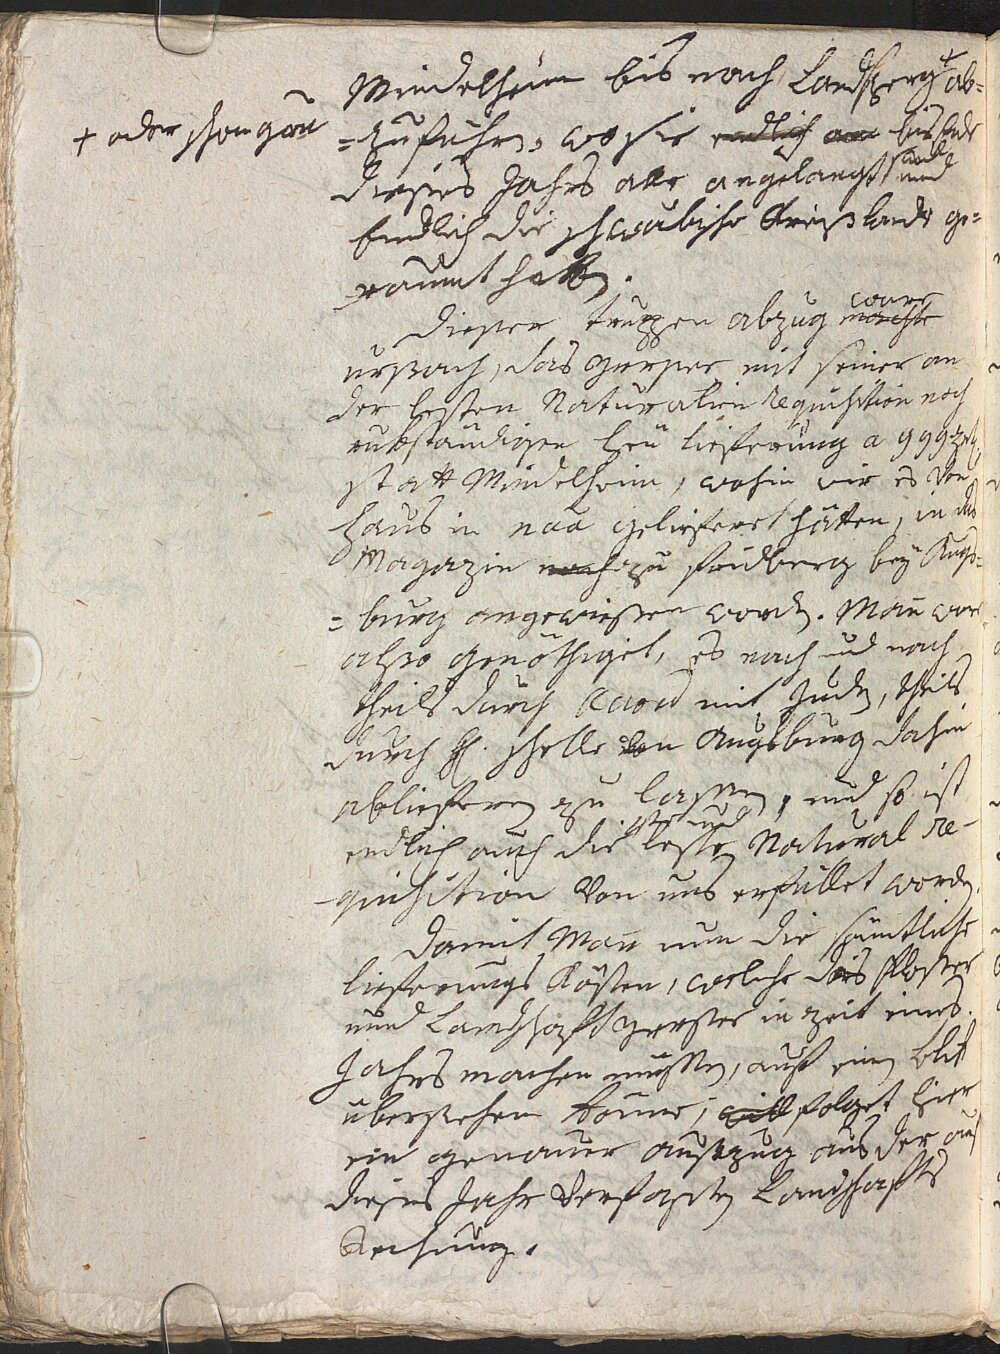 Mindelheim bis nach Landsberg + ab-
+ oder schongau
=zuführen, wo sie endlich am bis Ende
dieses Jahrs alle angelangt sind und
Endlich die schwäbische Kreißlande ge=
raumt haben.
Dieser truppen abzug ware machte
ursach, das gersper mit seiner an
der lesten Naturalien requisition noch
rukständigen heü lieferung a 999 zent.
statt Mindelheim, wohin wir es von
Haus in nah geliefert hätten, in das
Magazin nach zu fridberg bey Augs=
=burg angewiesen word. Man war
also genöthiget, es nach und nach
theils durch Accord mit Juden, theils
durch H. schelle von Augsburg dahin
abliefern zu lassen, und so ist
endlich auch die leste Natural re-
quisition von uns erfüllet worden.
Damit Man nun die sämtliche
lieferungs Kösten, welche das Kloster
und Landschaft in zeit eines
Jahrs machen mußten, auf einen blik
übersehen könne; will folget hier
ein genauer auszug aus der auf
dieses Jahr verfaßten Landschafts
Rechnung.